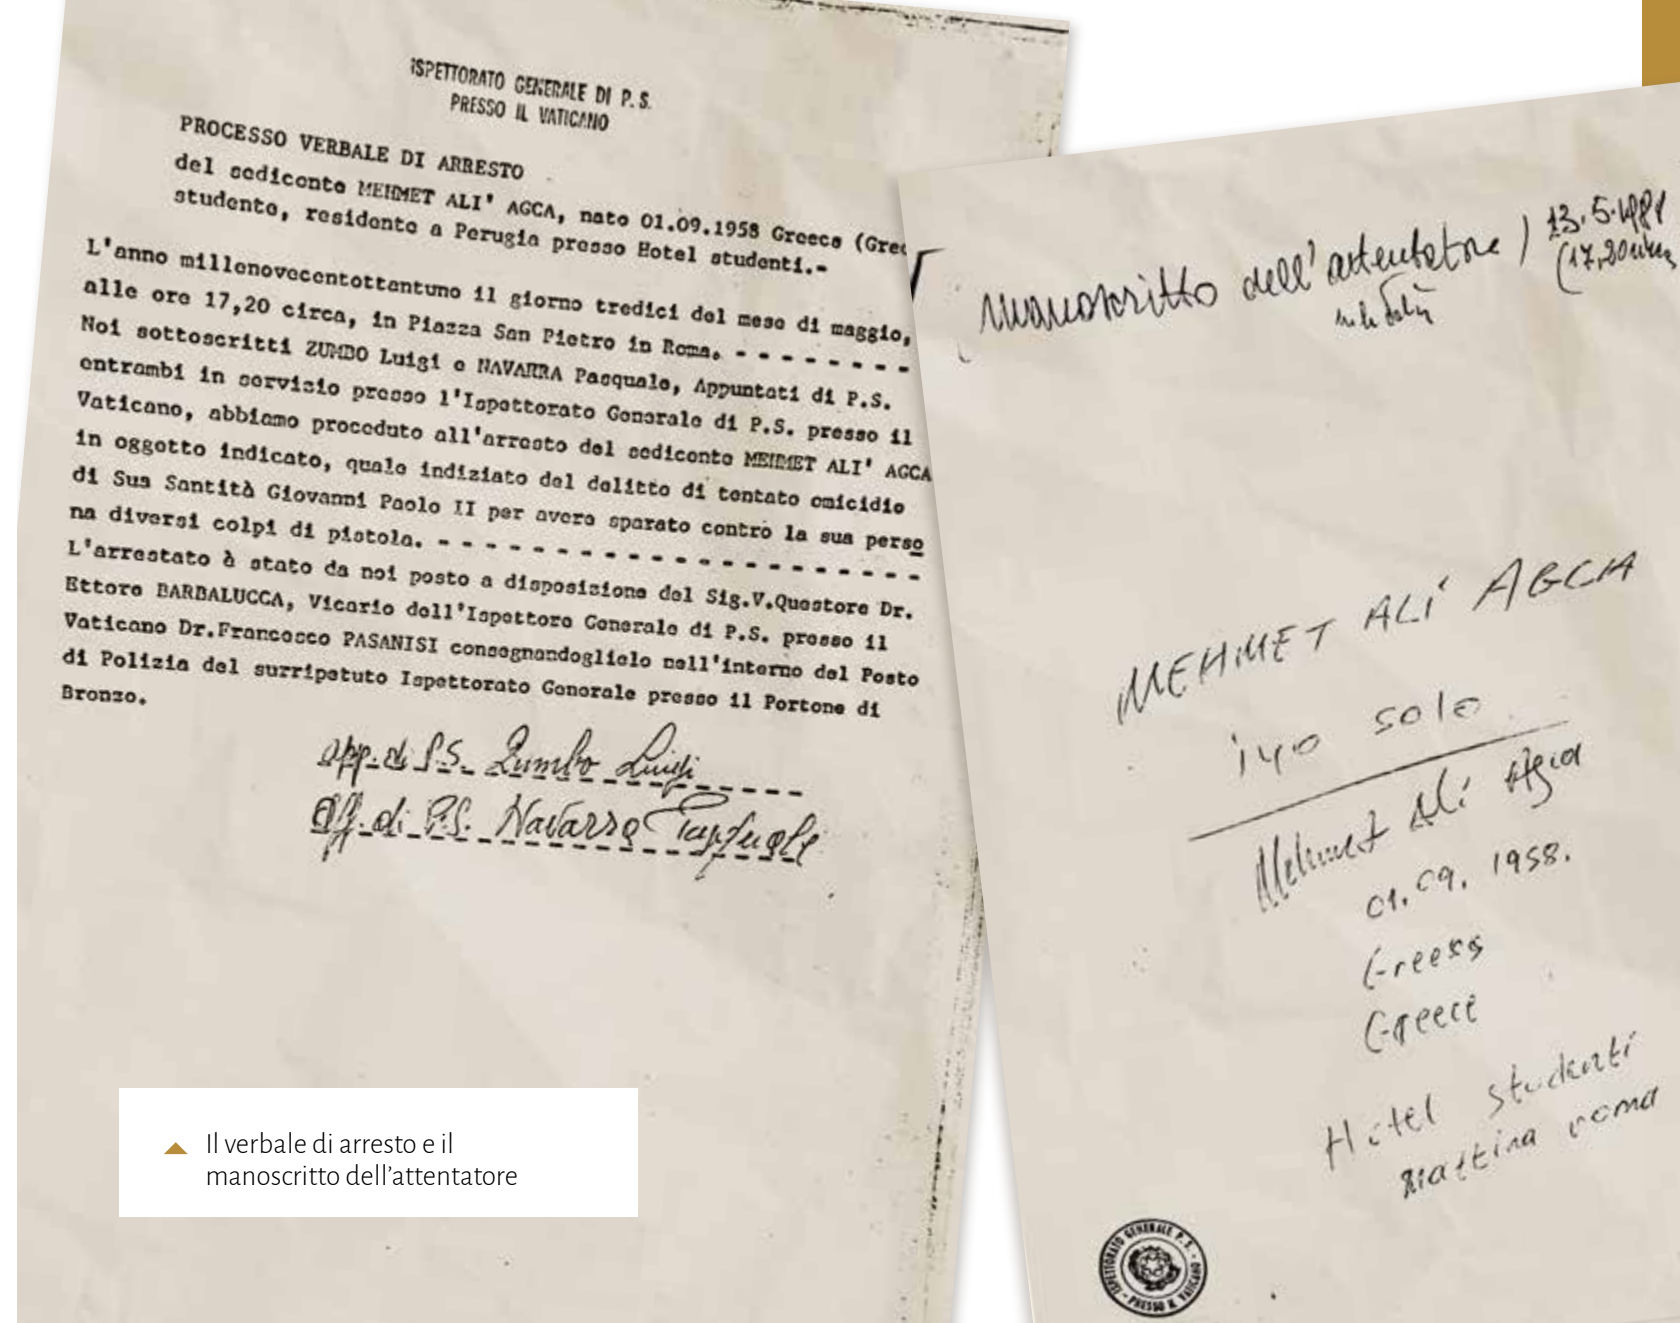 ISPETTORATO GENERALE DI P.S.
PRESSO IL VATICANO
PROCESSO VERBALE DI ARRESTO
del sedicente MEHMET ALI' AGCA, nato 01.09.1958 Greece (Grec
studente, residente a Perugia presso Hotel studenti.-
L'anno millenovecentottantuno il giorno tredici del mese di maggio,
alle ore 17,20 circa, in Piazza San Pietro in Roma. - - - - - - - -
Noi sottoscritti ZUMBO Luigi e NAVARRA Pasquale, Appuntati di P.S.
entrambi in servizio presso l'Ispettorato Generale di P.S. presso il
Vaticano, abbiamo proceduto all'arresto del sedicente MEHMET ALI' AGCA
in oggetto indicato, quale indiziato del delitto di tentato omicidio
di Sua Santità Giovanni Paolo II per avere sparato contro la sua perso
na diversi colpi di pistola. - - - - - - - - - - - - - - - - - - - - -
L'arrestato è stato da noi posto a disposizione del Sig.V.Questore Dr.
Ettore BARBALUCCA, Vicario dell'Ispettore Generale di P.S. presso il
Vaticano Dr.Francesco PASANISI consegnandoglielo nell'interno del Posto
di Polizia del surripetuto Ispettorato Generale presso il Portone di
Bronzo.
app. di P.S. Zumbo Luigi
App. di P.S. Navarra Pasquale
Il verbale di arresto e il
manoscritto dell'attentatore
manoscritto dell'attentatore 13.5.1981
(17,20
MEHMET ALİ AGCA
iyo solo
Mehmet Ali Agca
01.09.1958.
Greess
Greece
Hotel studenti
mattina roma
ISPETTORATO GENERALE P.S. - PRESSO IL VATICANO